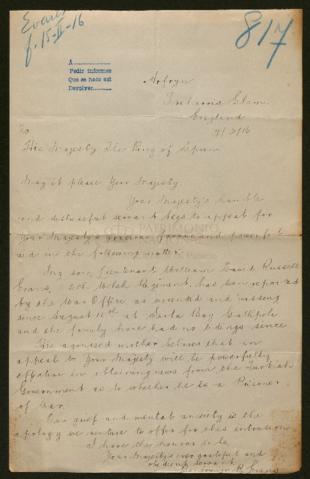 Evans
f. 15-II-16
817
A
Pedir informes
Que se haga así
Devolver
England
To
His Majesty The King of Spain
May it please Your Majesty
Your Majesty's humble
and distressful servant begs to appeal for
Your Majesty's gracious and powerful
aid in the following matter.
My son, Lieutenant William David Russell
Evans, Welsh Regiment, has been reported
by the War Office as wounded and missing
since August 11th at Suvla Bay Gallipoli
and the family have had no tidings since
His agonised mother believes that an
appeal to Your Majesty will be powerfully
effective in obtaining news from the Turkish
Government as to whether he is a Prisoner
of War.
Our grief and mental anxiety is the
apology we venture to offer for this intrusion
I have the honour to be
Your Majesty's ever grateful and
obedient servant
Evans